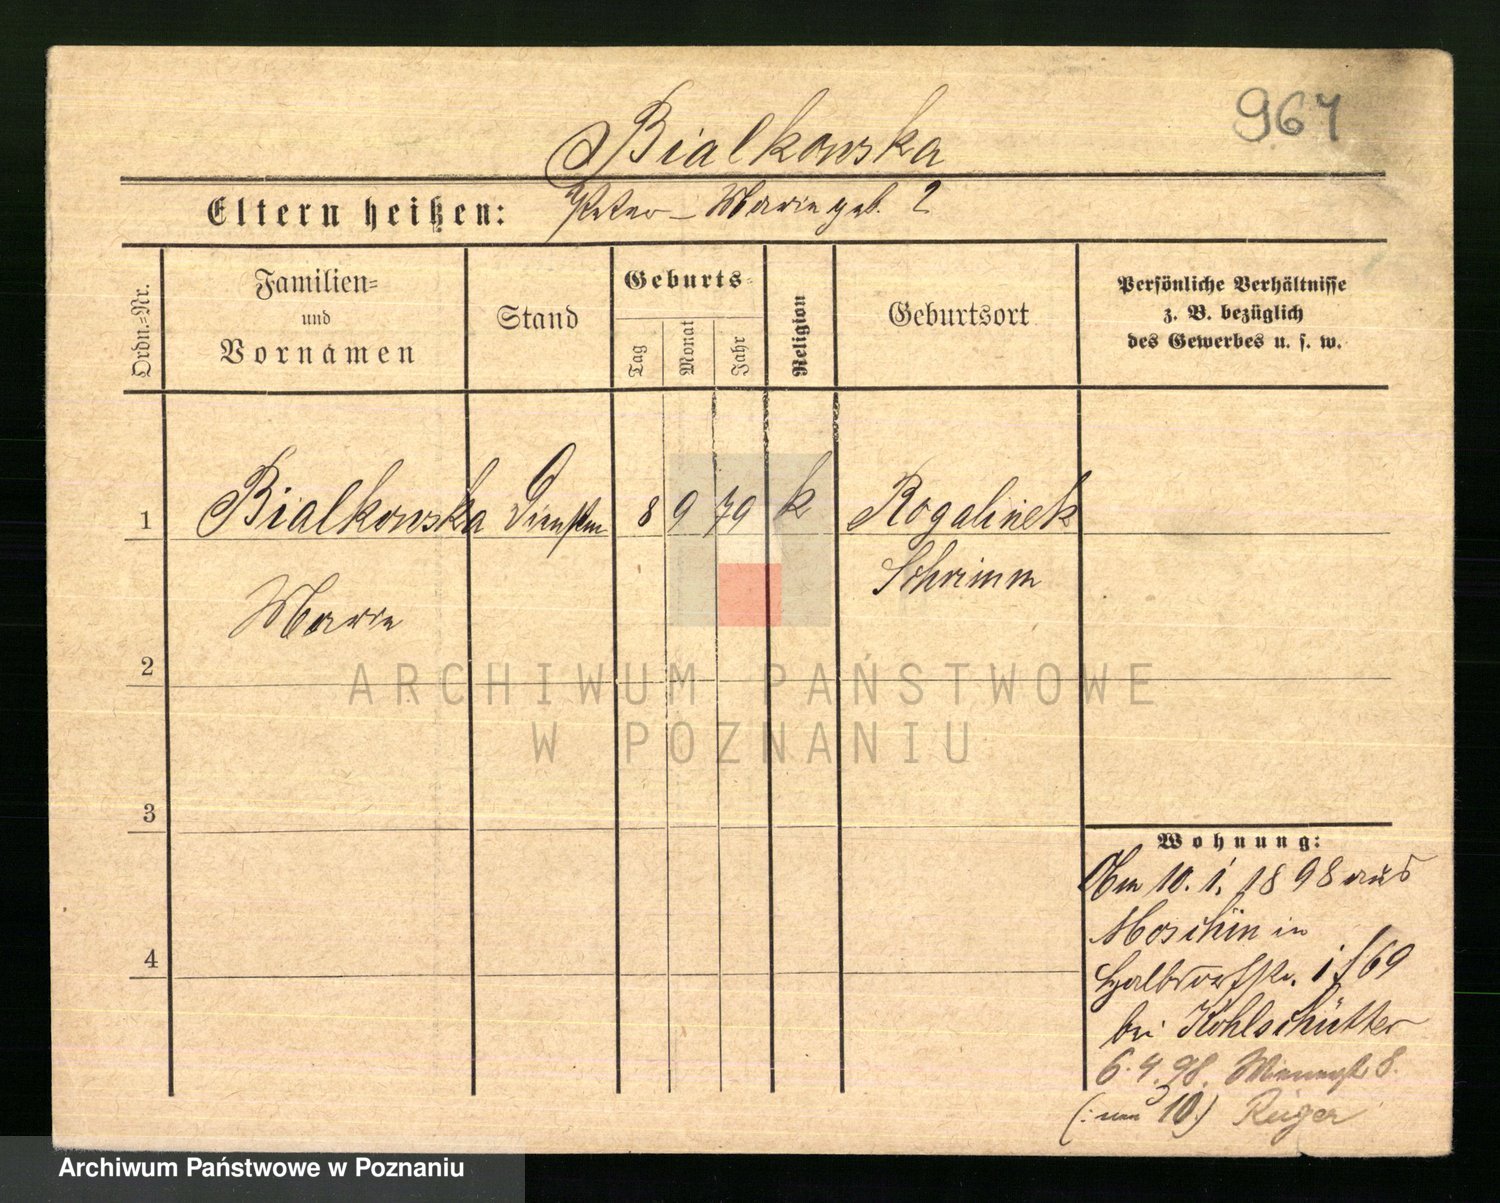 967
Bialkowska
Eltern heißen: Peter – Marie geb. ?
Ordn.=Nr.
Familien=
und
Vornamen
Stand
Geburts=
Tag
Monat
Jahr
Religion
Geburtsort
Persönliche Verhältnisse
z. B. bezüglich
des Gewerbes u. s. w.
1 Bialkowska 8 9 79 k Rogalinek
Schrimm
Marie
2
ARCHIWUM PAŃSTWOWE
W POZNANIU
3
Wohnung:
Am 10. 1. 1898 aus
Moschin in
4
Halbdorfstr. 169
bei Kohlschütter
6.4.98. 8.
10) Rüger
Archiwum Państwowe w Poznaniu